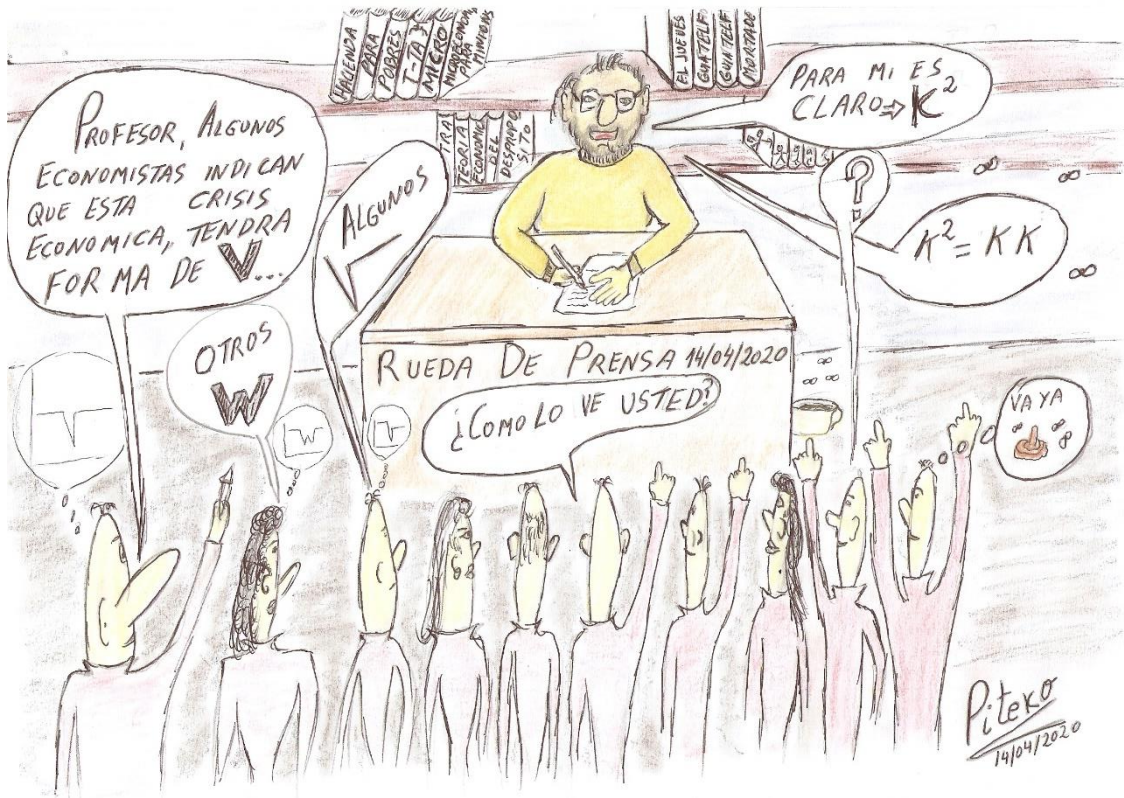 HACIENDA
PARA
POBRES
T-TA
MICRO
MICROECONOM
PARA
MINIONS
EL JUEVES
GUATELF
GUIATELF
MORTADE
TEORIA
ECONOMIC
DEL
DESPROPO
SITO
PROFESOR, ALGUNOS
ECONOMISTAS INDICAN
QUE ESTA CRISIS
ECONOMICA, TENDRA
FORMA DE V...
OTROS
W
ALGUNOS
PARA MI ES
CLARO ⇒ K²
?
K² = KK
RUEDA DE PRENSA 14/04/2020
¿COMO LO VE USTED?
W
VAYA
Piteko
14/04/2020